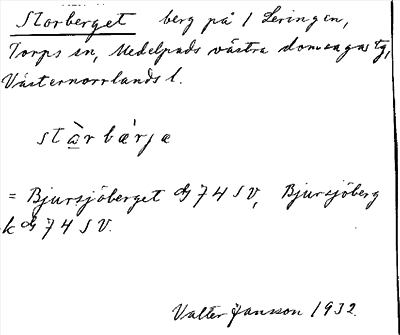 Storberget berg på / Leringen,
Torps sn, Medelpads västra domsagas tg,
Västernorrlands l.
stà̱rbær̀jæ
= Bjursjöberget 74 SV, Bjursjöberg
k 74 SV.
Valter Jansson 1932.